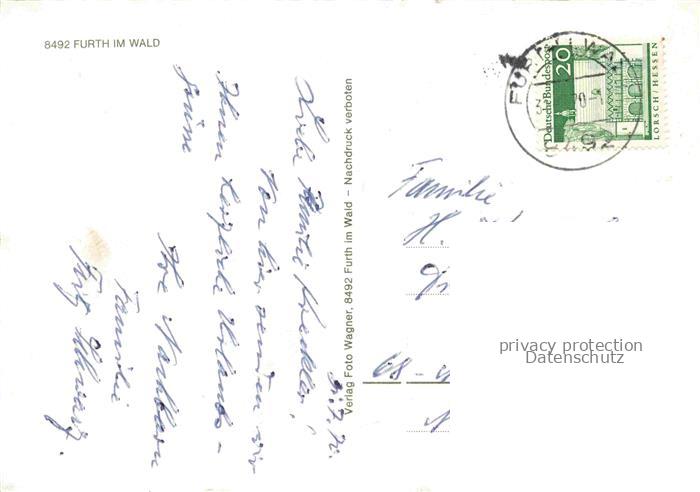 8492 FURTH IM WALD
31.7.70.
Liebe Familie
Von hier senden wir
Ihnen herzliche Urlaubs-
grüsse
Ihre Nachbarn
Familie
Fritz Schwarz.
Verlag Foto Wagner, 8492 Furth im Wald – Nachdruck verboten
FURTH I. WALD
8492
Deutsche Bundespost
20
LORSCH/HESSEN
Familie
H.
68 -
privacy protection
Datenschutz